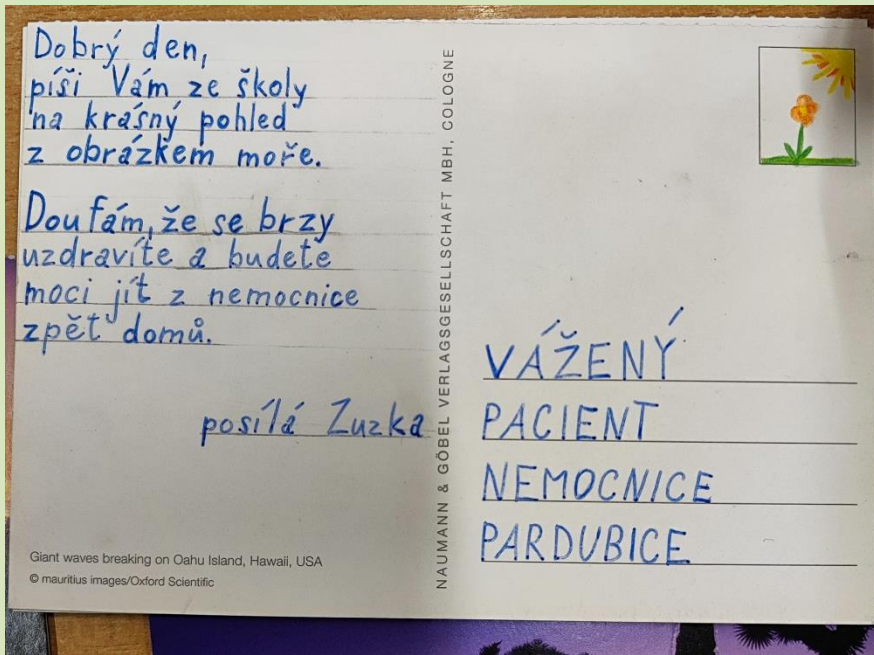 Dobrý den,
píši Vám ze školy
na krásný pohled
z obrázkem moře.
Doufám, že se brzy
uzdravíte a budete
moci jít z nemocnice
zpět domů.
posílá Zuzka
Giant waves breaking on Oahu Island, Hawaii, USA
© mauritius images/Oxford Scientific
NAUMANN & GÖBEL VERLAGSGESELLSCHAFT MBH, COLOGNE
VÁŽENÝ
PACIENT
NEMOCNICE
PARDUBICE